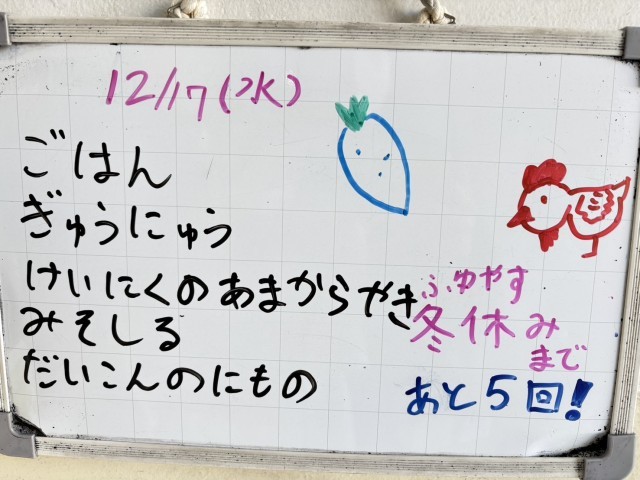 12/17(水)
ごはん
ぎゅうにゅう
けいにくのあまからやき
みそしる
だいこんのにもの
ふゆやす
冬休み
まで
あと5回!